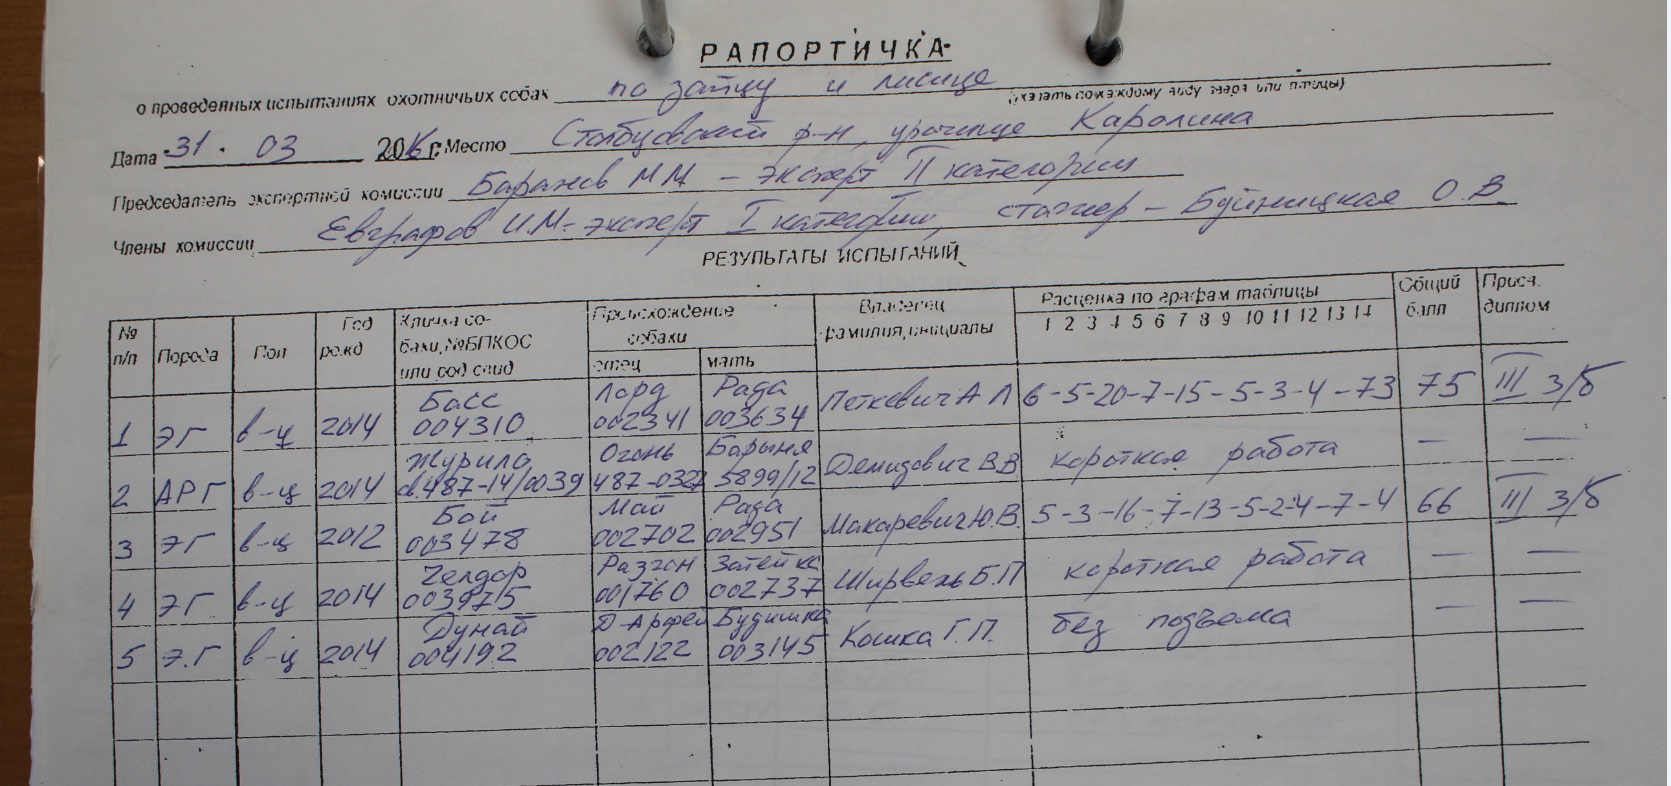 РАПОРТИЧКА
о проведенных испытаниях охотничьих собак по зайцу и лисице
(указать по каждому виду зверя или птицы)
Дата 31. 03 2016 г. Место Столбцовский р-н, урочище Каролина
Председатель экспертной комиссии М.М. – эксперт II категории
Члены комиссии Евграфов И.М. – эксперт I категории, стажер – Буйницкая О.В.
РЕЗУЛЬТАТЫ ИСПЫТАНИЙ
№ п/п Порода Пол Год рожд Кличка собаки, №БПКОС или род свид Происхождение собаки отец мать Владелец фамилия, инициалы Расценка по графам таблицы 1 2 3 4 5 6 7 8 9 10 11 12 13 14 Общий балл Присв. диплом
1 ЭГ в-ц 2014 Басс 004310 Лорд 002341 Рада 003634 Петкевич А Л 6-5-20-7-15-5-3-4-73 75 III з/б
2 АРГ в-ц 2014 Журило св.487-14/0039 Огонь Барыня 5899/12 Демидович В.В короткая работа — —
3 ЭГ в-ц 2012 Бой 003478 Май 002702 Рада 002951 Макаревич Ю.В. 5-3-16-7-13-5-2-4-7-4 66 III з/б
4 ЭГ в-ц 2014 Челдар 003975 Разгон 001760 Затейка 002737 Б.П короткая работа — —
5 Э.Г в-ц 2014 Дунай 004192 Д-Арфей 002122 Будишка 003145 Кошка Г.П. без подъема — —